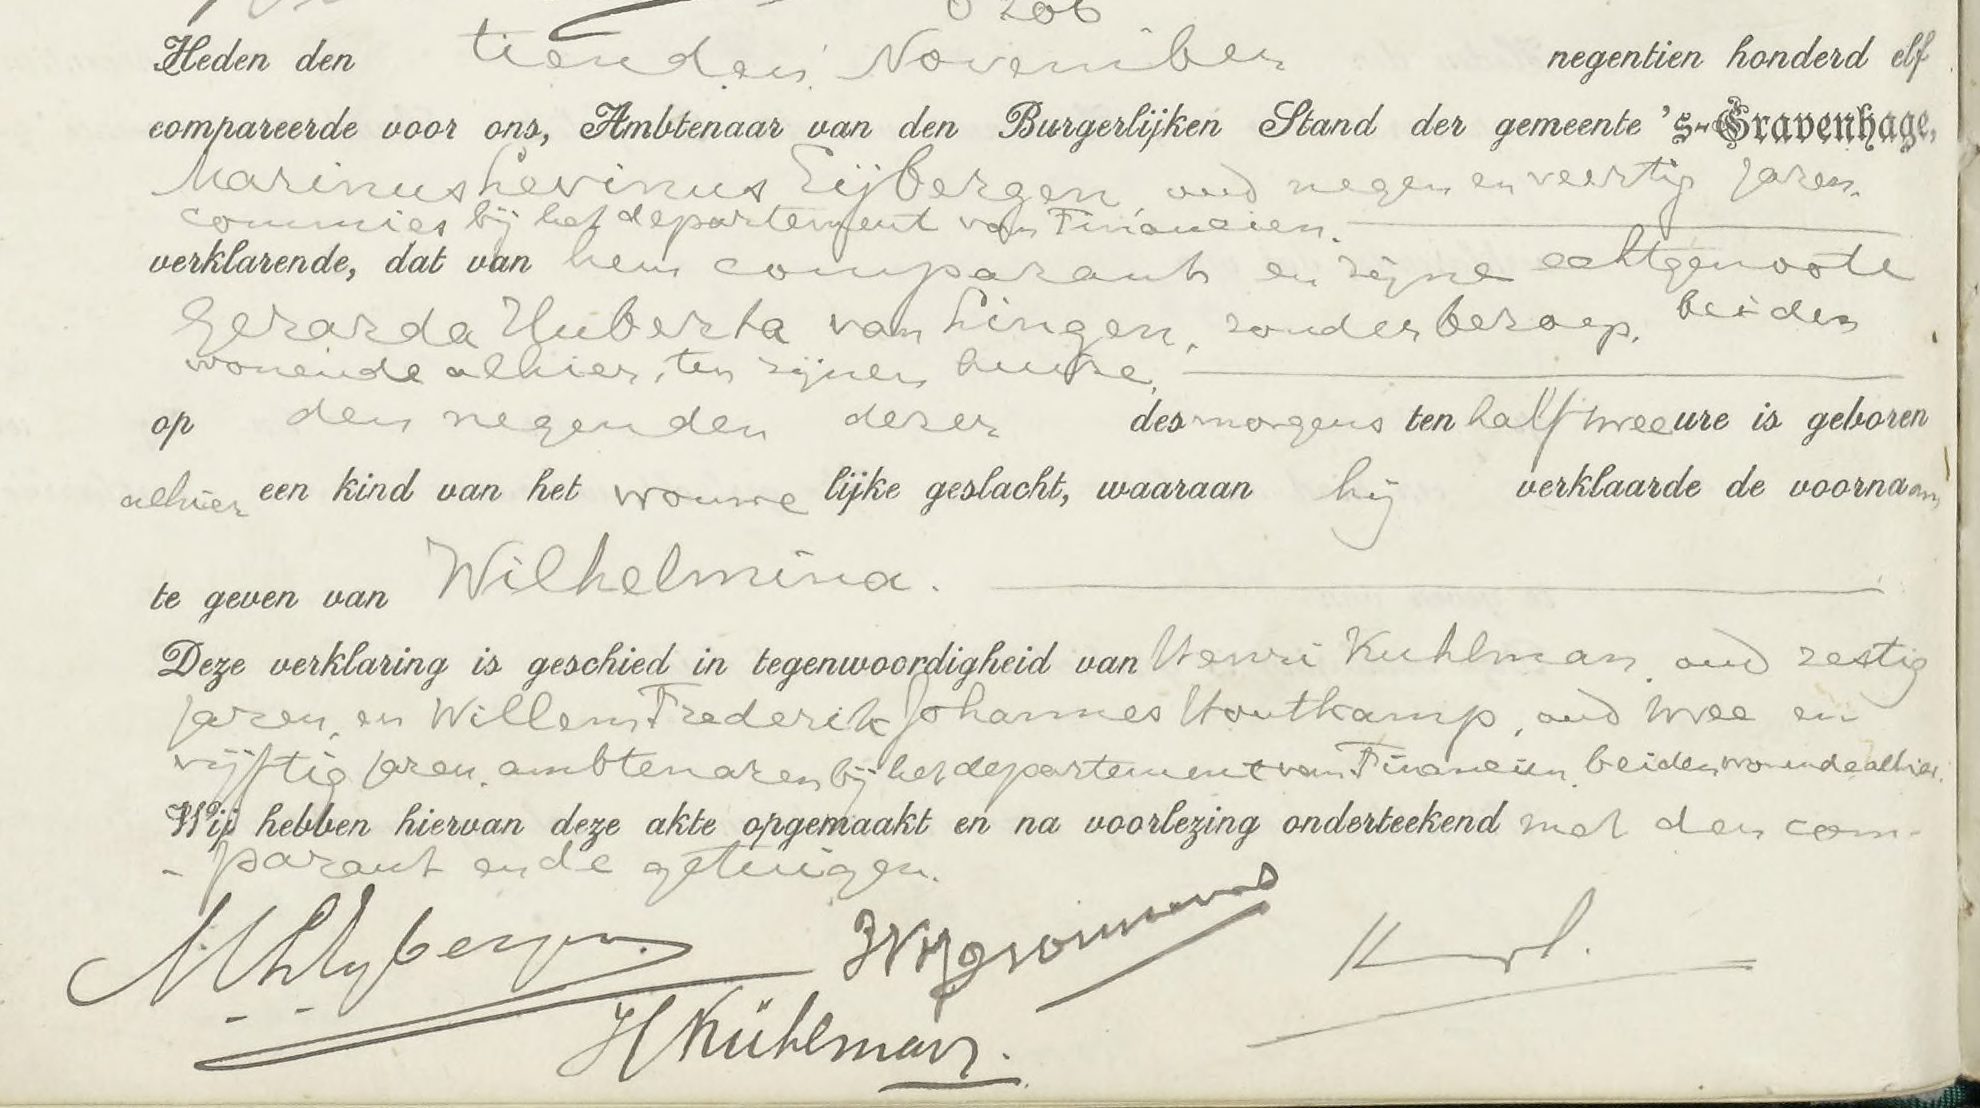 6206
Heden den tienden November negentien honderd elf
compareerde voor ons, Ambtenaar van den Burgerlijken Stand der gemeente 's-Gravenhage,
Marinus Levinus Eijbergen, oud negen en veertig jaren,
commies bij het departement van Financien.
verklarende, dat van hem comparant en zijne echtgenoote
Gerarda Huberta van Lingen, zonder beroep, beiden
wonende alhier, ten zijnen huize,
op den negenden dezer des morgens ten half twee ure is geboren
alhier een kind van het vrouwelijke geslacht, waaraan hij verklaarde de voornaam
te geven van Wilhelmina.
Deze verklaring is geschied in tegenwoordigheid van Henri Kuhlman, oud zestig
jaren, en Willem Frederik Johannes Houtkamp, oud twee en
vijftig jaren, ambtenaren bij het departement van Financiën, beiden wonende alhier.
Wij hebben hiervan deze akte opgemaakt en na voorlezing onderteekend met den com-
-parant en de getuigen.
MLEybergen.
HKühlman.